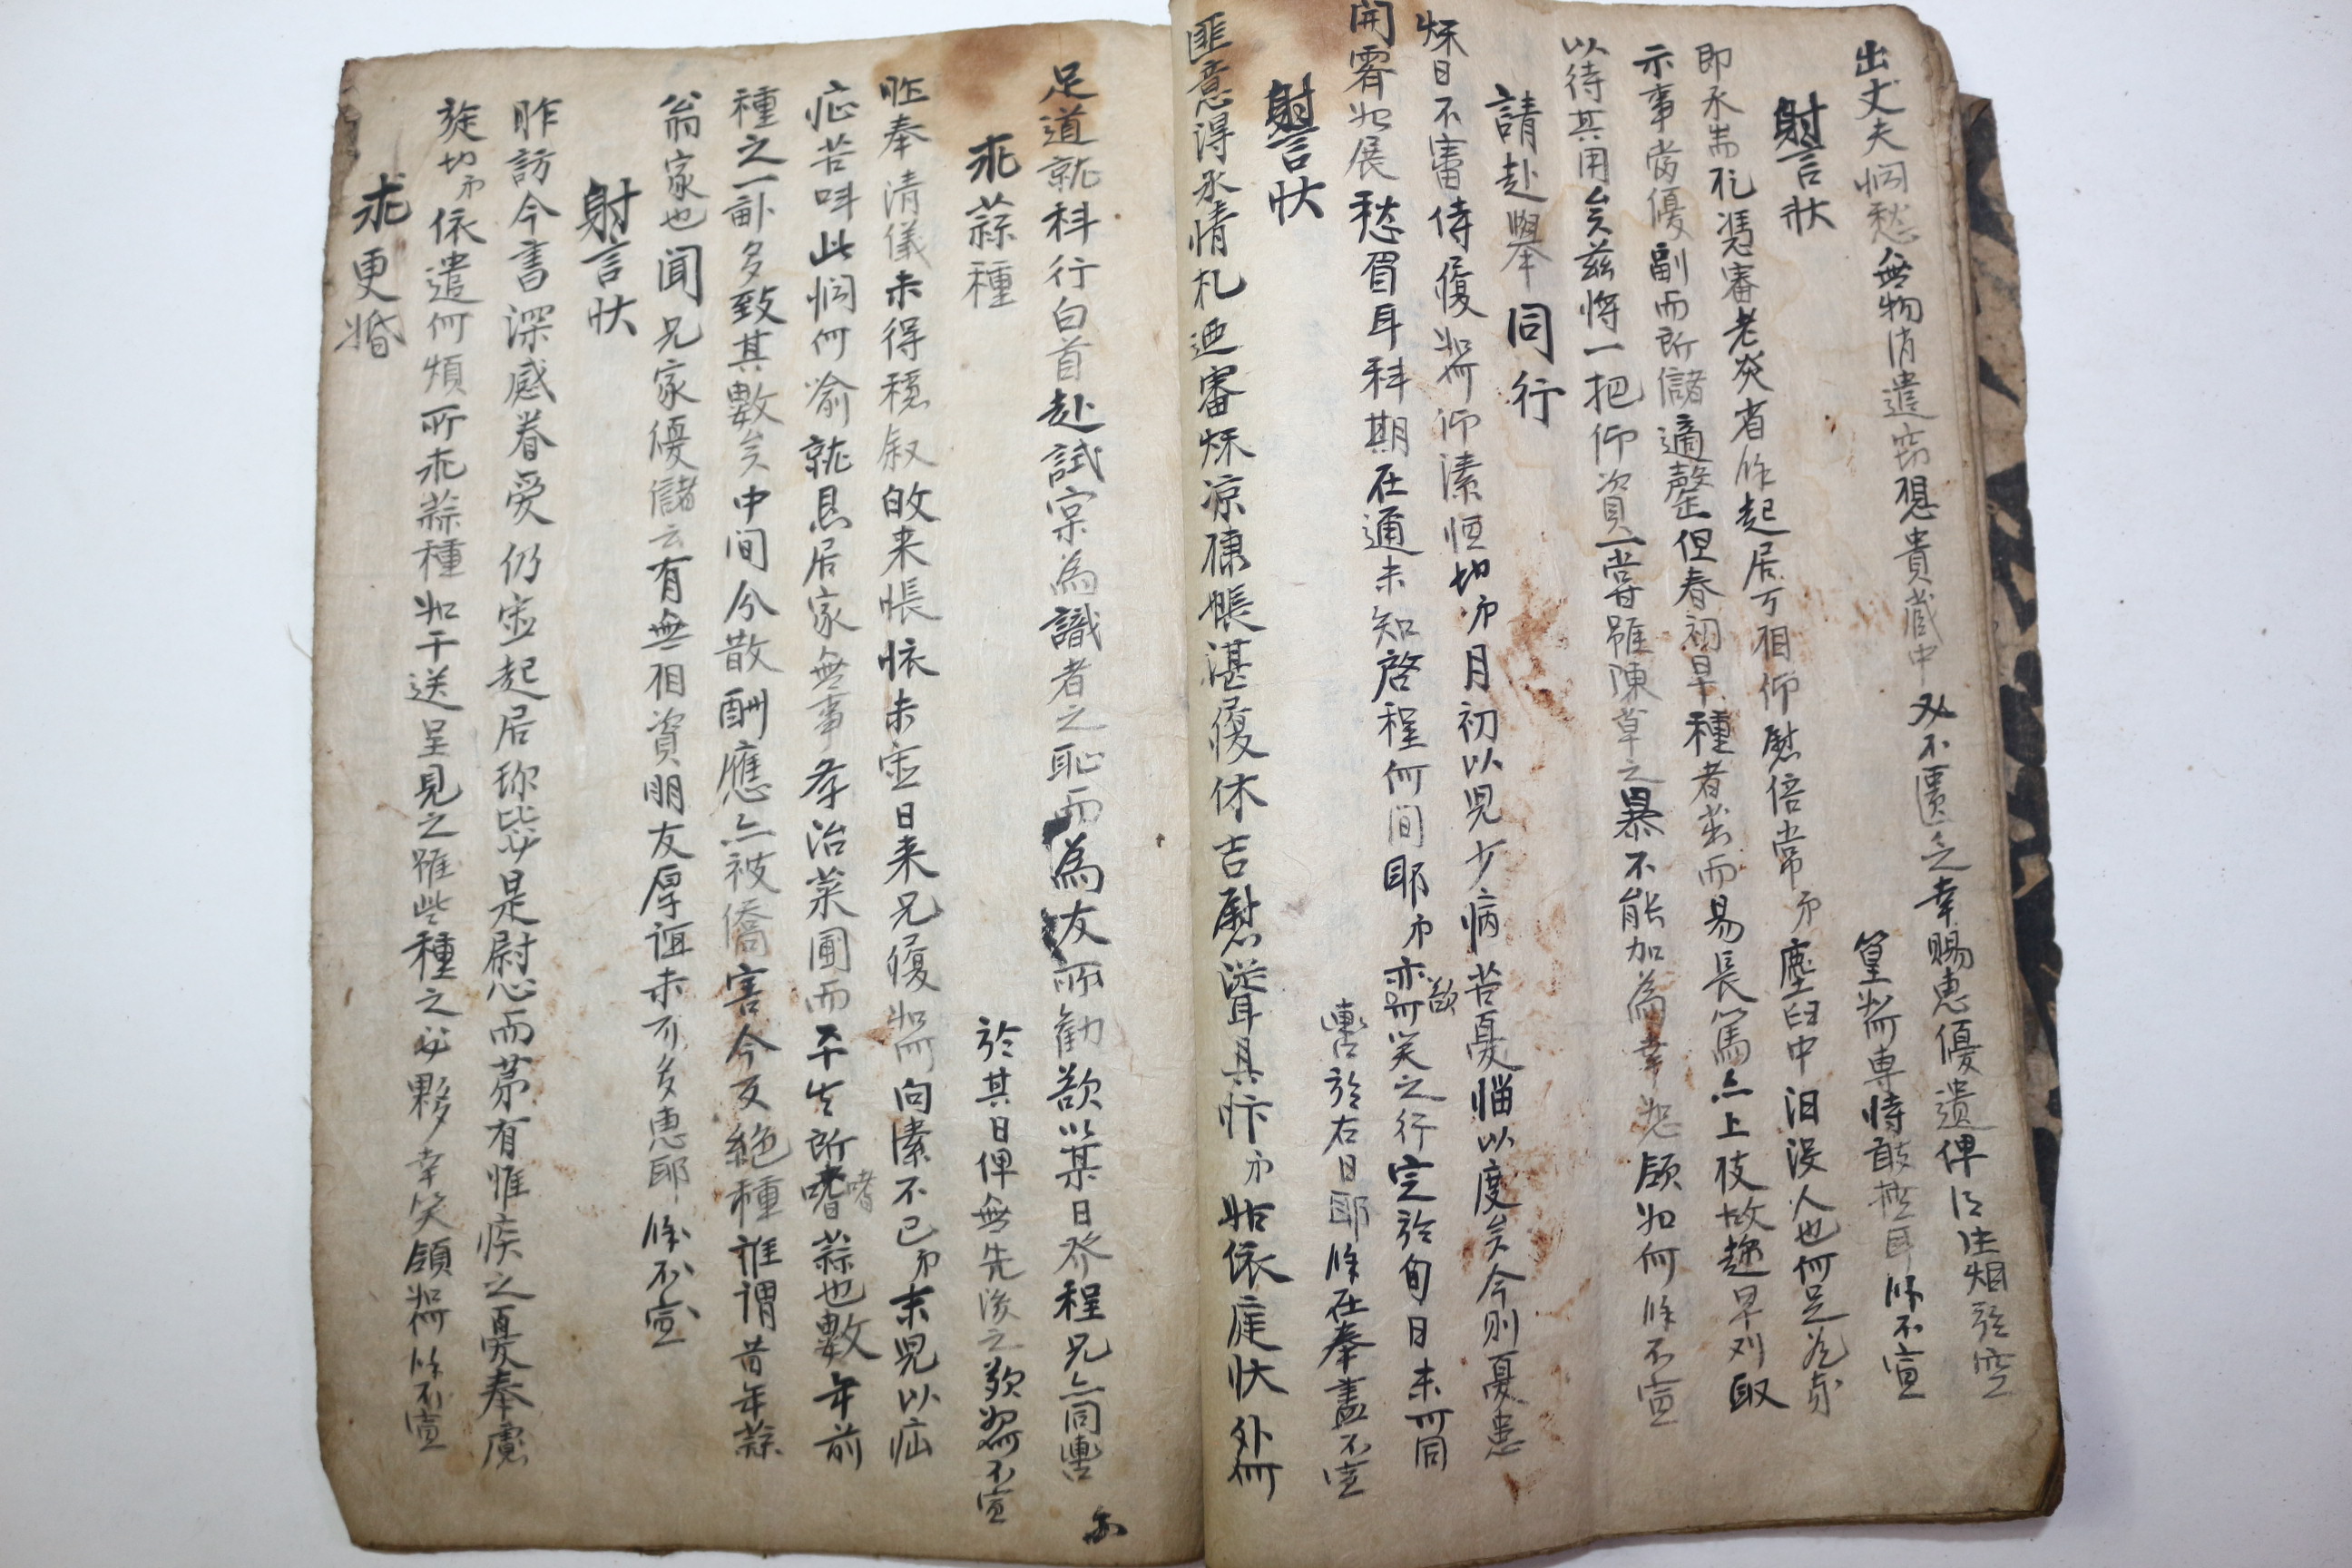 出丈夫悶愁無物消遣窃想貴藏中必不匱乏幸賜惠優遺俾得注烟於空
篁如何專恃敢控耳餘不宣
謝狀
即承耑札憑審老炎省餘起居万相仰慰倍常弟塵臼中汨沒人也何足道哉
示事當優副而所儲適罄但春初早種者出而易長篤亦上枝故趂早刈取
以待其用矣茲將一把仰資一嘗雖陳草之暴不能加爲幸恕領如何餘不宣
請赴擧同行
秋日不審侍履如何仰溸恒切弟月初以兒少病苦憂惱以度矣今則憂患
開霽如展愁眉耳科期在通未知啓程何間耶弟亦欲觀笑之行定於旬日未可同
轡於右日耶餘在奉盡不宣
謝言狀
匪意得承情札迺審秋凉棣帳湛履休吉慰聳具忭弟姑依庭狀外何
足道就科行白首赴試窠爲識者之恥而爲友所勸欲以某日發程兄亦同轡
於其日俾無先後之歎如何不宣
求蒜種
昨奉清儀未得穩叙皈来悵依未宣日来兄履如何向溸不已弟末兒以疝
症苦叫此悶何喻就息居家無事孝治菜圃而平生所嗜蒜也數年前
種之一畝多致其數矣中间分散酬應亦被僑害今反絶種誰謂昔年蒜
翁家也聞兄家優儲云有無相資朋友厚誼未可多惠耶餘不宣
謝言狀
昨訪今書深感眷愛仍宣起居珎毖是慰心而苐有惟疾之憂奉慮
旋切弟依遣何煩所求蒜種如干送呈見之雖些種之必夥幸笑領如何餘不宣
求更婚